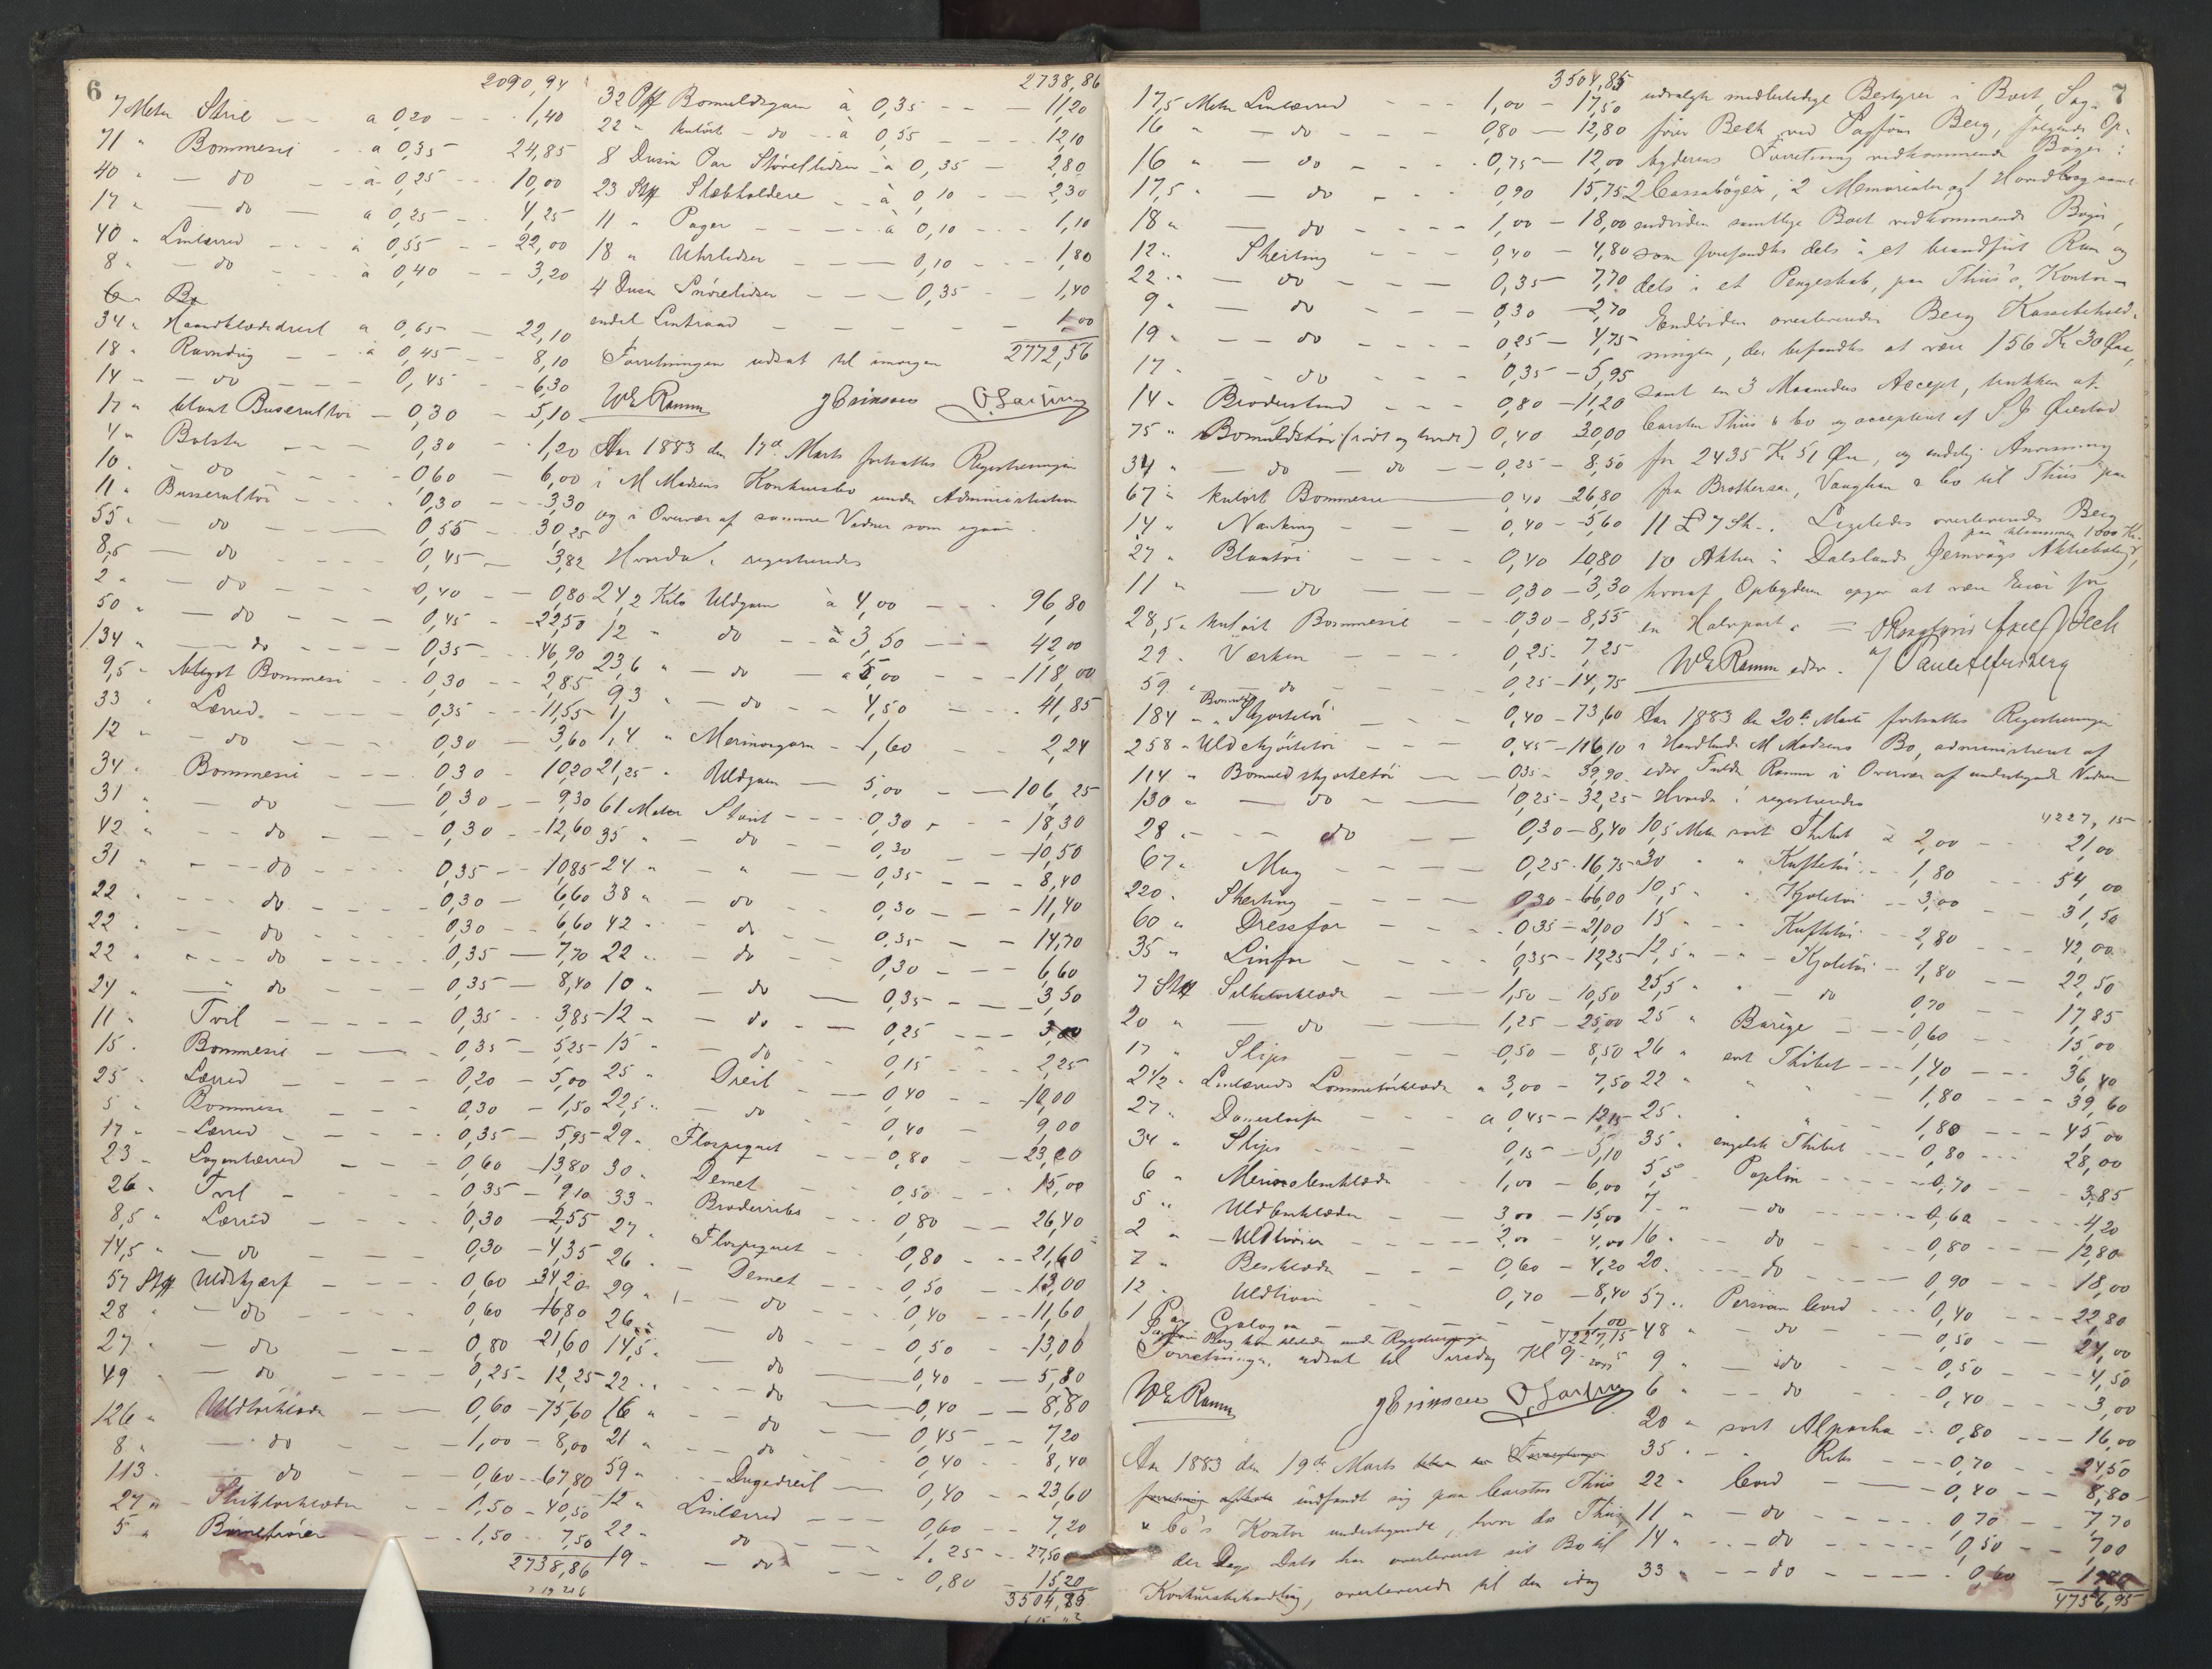 6
2090,94
7 Meter Strie - - a 0,20 - - 1,40
71 " Bommesie - - a 0,35 - 24,85
40 " - do - - à 0,25 - - 10,00
17 " - do - a 0,25 - - 4,25
40 " Linlærred - - - à 0,55 - - 22,00
8 " - do - - - à 0,40 - - 3,20
34 " Haandklædedreil a 0,65 - 22,10
18 " Ravndug - - à 0,45 - - 8,10
14 " - do - - - 0,45 - - 6,30
17 " blaat Buserultøi - 0,30 - 5,10
4 " Bolster - - - 0,30 - - 1,20
10 " - do - - - 0,60 - 6,00
11 " Busserultøi - - - 0,30 - - 3,30
55 " - do - - - 0,55 - 30,25
8,5 - do - - - 0,45 - 3,82
2 " - do - - - 0,40 - - 0,80
50 " - do - - - 0,45 - - 22,50
134 " - do - - - 0,35 - - 46,90
9,5 " ubleget Bommesi - - 0,30 - - 2,85
33 " Lærred - - - 0,35 - - 11,55
12 " - do - - - 0,30 - 3,60
34 " Bommesie - - - 0,30 - 10,20
31 " - do - - - 0,30 - - 9,30
42 " - do - - - 0,30 - - 12,60
31 " - - do - - - 0,35 - - 10,85
22 " - - do - - - 0,30 - 6,60
22 " - - do - - - 0,30 - - 6,60
22 " - - do - - - 0,35 - 7,70
24 " - " do - - - 0,35 - 8,40
11 " Tvil - - - 0,35 - - 3,85
15 " Bommesie - - - 0,35 - 5,25
25 " Lærred - - - 0,20 - 5,00
5 " Bommesi - - - 0,30 - 1,50
17 " - Lærred - - - 0,35 - 5,95
23 " Lagenlærred - - - 0,60 - 13,80
26 " Tvil - - - 0,35 - 9,10
8,5 " Lærred - - - 0,30 - 2,55
14,5 " - do - - - 0,30 - 4,35
57 Stk Uldskjærf - - - 0,60 - 34,20
28 " - do - - - 0,60 - 16,80
27 " - do - - - 0,80 - 21,60
49 " - do - - - 0,25 - 12,25
126 " Uldtørklæder - - 0,60 - 75,60
8 " - do - - - 1,00 - 8,00
113 " - do - - - 0,60 - 67,80
27 " - Striktørklæder - - 1,50 - 40,50
5 " Børnetrøier - - - 1,50 - - 7,50
2738,86
2738,86
32 Pk Bomuldsgarn à 0,35 - - - 11,20
22 " kulørt - do - - à 0,55 - - - 12,10
8 Dusin Par Støvelhidser - à 0,35 - 2,80
23 Stk Slæbholdere - - à 0,10 - - 2,30
11 " Pager - - - - à 0,10 - - - 1,10
18 " Uhrlidser - - - 0,10 - - - 1,80
4 Dusin Snørelidser - - - 0,35 - - 1,40
endel Lintraad - - - - - - 1,00
2772,56
Forretningen udsat til imorgen
W E Ramm J Erinsen O. Larsen
Aar 1883 den 17de Marts fortsattes Registreringen
i M Madsens Konkursbo under Administration
og i Overvær af samme Vidner som igaar.
Hvorda i registreredes
24,2 Kilo Uldgarn à 4,00 - - - 96,80
12 " do - - à 3,50 - - - 42,00
23,6 " - do - à 5,00 - - - 118,00
9,3 " - do - - 4,50 - - - 41,85
1,4 " Merinogarn - 1,60 - - 2,24
21,25 " Uldgarn - 5,00 - - 106,25
61 Meter Stout - - - 0,30 - - 18,30
35 " - do - - 0,30 - - 10,50
24 " - " - - 0,35 - - - 8,40
38 " - do - - 0,30 - - - 11,40
42 " - do - - 0,35 - - 14,70
22 " - do - - 0,30 - - - 6,60
10 " - do - 0,35 - - - 3,50
12 " - do - - 0,25 - - - 3,00
15 " - do - - 0,15 - - 2,25
25 " Dreil - - 0,40 - - 10,00
22,5 " - do - - 0,40 - - 9,00
29 " Flospiquet - - - 0,80 - - 23,20
30 " Demet - - - 0,50 - - 15,00
33 " Broderribs - - - 0,80 - - 26,40
27 " Flospiquet - - 0,80 - - - 21,60
26 " - Demet - - - 0,50 - - - 13,00
29 " - do - - - 0,40 - - 11,60
26 " - do - - - 0,50 - - 13,00
14,5 " - do - - 0,40 - - 5,80
22 " - do - - - 0,40 - - 8,80
16 " - do - - 0,45 - - 7,20
21 " - do - - - 0,40 - - 8,40
59 " - - Dugedreil - 0,40 - - 23,60
12 " Linlærred - - - 0,60 - - 7,20
22 " do - - - 1,25 - - 27,50
19 " - do - - - 0,80 - 15,20
3504,85
7
3504,85
17,5 Meter Linlærred - - - 1,00 - 17,50
16 " - do - - - 0,80 - 12,80
16 " - do - - - 0,75 - 12,00
17,5 " - do - - - 0,90 15,75
18 " - do - - - 1,00 - 18,00
12 " Sherting - - - 0,40 - 4,80
22 " - do - - - 0,35 - 7,70
9 " - do - - - 0,30 - 2,70
19 " - - do - - - 0,25 - 4,75
17 " - - do - - - 0,35 - 5,95
14 " Broderstrud - - - 0,80 - 11,20
75 " Bomuldstøi (rødt og brunt) 0,40 30,00
34 " - do - do - - 0,25 - 8,50
67 " kulørt Bommesie - 0,40 - 26,80
14 " Nanking - - - 0,40 - 5,60
27 " Blaatøi - - - 0,40 10,80
11 " - do - - - 0,30 - 3,30
28,5 " kulørt Bommesie - - 0,30 - 8,55
29 " Værken - - - 0,25 - 7,25
59 " - do - - - 0,25 - 14,75
184 " Bomulds Skjortetøi - - - 0,40 - 73,60
258 " Uldskjortetøi - - - 0,45 - 116,10
114 " Bomuldskjortetøi - - 0,35 - 39,90
130 " - do - - 0,25 - 32,25
28 " - - do - - 0,30 - 8,40
67 " Mug - - - 0,25 - 16,75
220 " Sherting - - - 0,30 - 66,00
60 " Dressfor - - - 0,35 - 21,00
35 " Linfor - - - 0,35 - 12,25
7 Stk Silketørklæde - - 1,50 - 10,50
20 " - do - - 1,25 - 25,00
17 " Slips - - - 0,50 - 8,50
2 1/2 " Linlærreds Lommetørklæde a 3,00 - 7,50
27 " - - - a 0,45 - 12,15
34 " Slips - - - 0,15 - 5,10
6 " Merinotørklæde - - 1,00 - 6,00
5 " Uldtørklæder - - 3,00 - 15,00
2 " - Uldtrøier - - - 2,00 - 4,00
7 " Besklæder - - - 0,60 - 4,20
12 " Uldtrøier - - 0,70 - 8,40
1 Par Galoger - - - - 1,00
4227,15
Sagfører Berg kom tilstede under Registreringen
Forretningen udsat til Tirsdag Kl 9
W E Ramm J Erinsen O. Larsen
Aar 1883 den 19de Marts
indfandt sig paa Carsten Thiis
& Co's Kontor undertegnede, hvor da Thiis,
der Dags Dato har overleveret sit Bo til
Konkursbehandling, overleverede til den idag
udvalgte midlertidige Bestyrer i Boet, Sag-
fører Bech ved Sagfører Berg, følgende Op-
byderens Forretning vedkommende Bøger:
2 Cassabøger, 2 Memorialer og 1 Hovedbog samt
endvidere samtlige Boet vedkommende Bøger,
som forefandtes dels i et brandfrit Rum og
dels i et Pengeskab, paa Thiis's Kontor -
Endvidere overleveredes Berg Kassebehold-
ningen, der befandtes at være 156 Kr 30 Øre,
samt en 3 Maaneders Accept, trukken af
Carsten Thiis & Co og accepteret af S. J. Ørestad
for 2435 Kr 51 Øre, og endelig Anvisning
fra Brothersen, Vaughan & Co til Thiis paa
11 £ 7 Sh. . Ligeledes overleveredes Berg
paa tilsammen 1000 Kr.
10 Aktier i Dalslands Jernvägs Aktiebolag,
hvoraf Opbyderen opgav at være Eier for
en Halvpart.
W E Ramm edsv.
Aar 1883 den 20de Marts fortsattes Registreringen
i Handlende M Madsens Bo, administreret af
edsv Fuldm Ramm i Overvær af undertegnede Vidner
Hvorda i registreredes
4227,15
10,5 Meter sort Thibet à 2,00 - - 21,00
30 " " Kufteløi - - 1,80 - - - 54,00
10,5 " " Kjoletøi - - 3,00 - - 31,50
15 " - - Kuftetøi - - 2,80 - - - 42,00
12,5 " - - Kjoletøi - - 1,80 - - 22,50
25,5 " " - do 0,70 - - 17,85
25 " Barège - - - 0,60 - - 15,00
26 " sort Thibet - - - 1,40 - - - 36,40
22 " " " - 1,80 - - - 39,60
25 " " " - 1,80 - - - 45,00
35 " engelsk Thibet - - - 0,80 - - - 28,00
5,5 - Poplin - - - - 0,70 - - - 3,85
7 - " - do - - - - 0,60 - - - 4,20
16 " - do - - - 0,80 - - - 12,80
20 " - - do - - - 0,90 - - - 18,00
57 " Persian Cord - - - 0,40 - - - 22,80
48 " - do - - - 0,50 - - 24,00
9 " - do - - - 0,50 - - 4,50
6 " - - do - - - 0,40 - - - 3,00
20 " sort Alpacka - - 0,80 - - - 16,00
35 " - " Ribs - - - 0,70 - - 24,50
22 " Cord - - - 0,40 - - 8,80
11 " - do - - - 0,70 - - 7,70
14 " - - do - - - 0,50 - - 7,00
33 " - - do - - - 0,60 -
4756,95